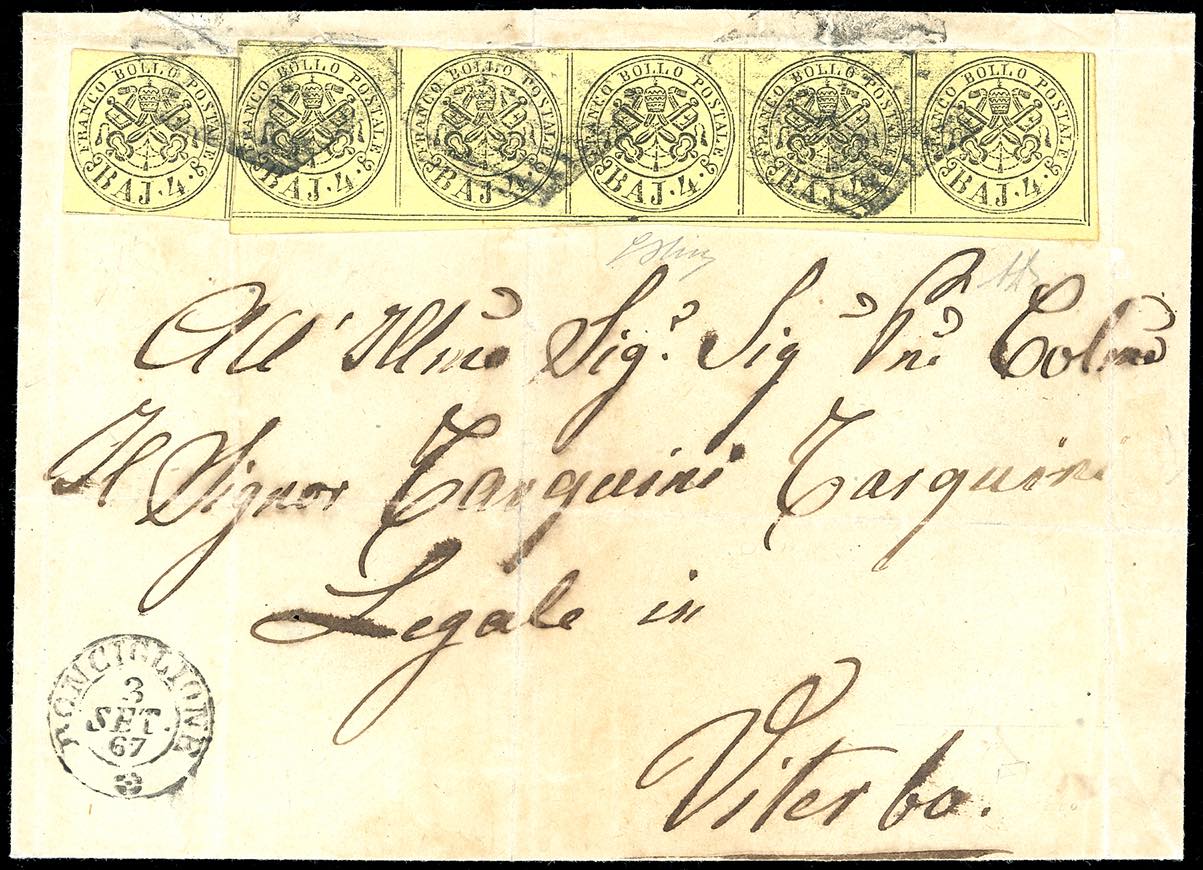 FRANCO BOLLO POSTALE BAJ. 4.
FRANCO BOLLO POSTALE BAJ. 4.
FRANCO BOLLO POSTALE BAJ. 4.
FRANCO BOLLO POSTALE BAJ. 4.
FRANCO BOLLO POSTALE BAJ. 4.
FRANCO BOLLO POSTALE BAJ. 4.
All' Illmo Sig.r Sig Pne Colmo
Il Signor Tarquini Tarquini
Legale in
Viterbo.
RONCIGLIONE
3
SET.
67